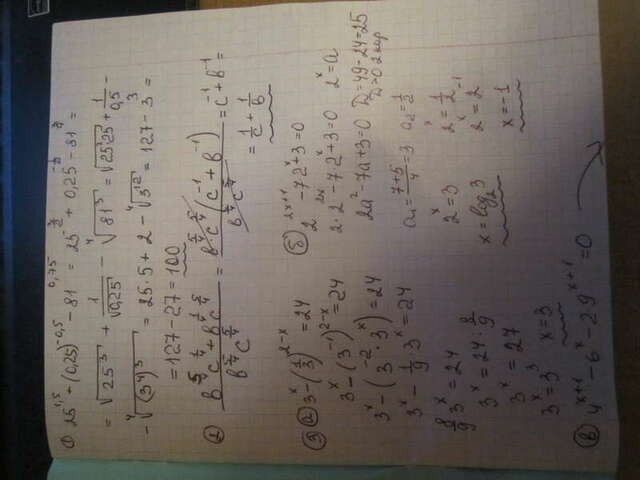 1) 25^1,5 + (0,25)^-0,5 - 81^0,75 = 25^(3/2) + 0,25^(-1/2) - 81^(3/4) =
= √25³ + 1/√0,25 - ⁴√81³ = √25²·25 + 1/0,5 -
- ⁴√(3⁴)³ = 25·5 + 2 - ⁴√3¹² = 127 - 3³ =
= 127 - 27 = 100
2) (в^(5/4)c^(1/4) + в^(1/4)c^(5/4)) / (в^(5/4)c^(5/4)) = (в^(5/4)·c^(5/4)(c^-1 + в^-1)) / (в^(5/4)c^(5/4)) = c^-1 + в^-1 =
= 1/c + 1/в
3) а) 3^x - (1/3)^(2-x) = 24
3^x - (3^-1)^(2-x) = 24
3^x - (3^-2 · 3^x) = 24
3^x - 1/9 · 3^x = 24
8/9 3^x = 24
3^x = 24 · 8/9
3^x = 27
3^x = 3³ x = 3
б) 2^(2x+1) - 7·2^x + 3 = 0
2·2^2x - 7·2^x + 3 = 0 2^x = a
2a² - 7a + 3 = 0 D = 49 - 24 = 25
D > 0 2 кор
a₁ = (7+5)/4 = 3 a₂ = 1/2
2^x = 3 2^x = 1/2
2^x = 2^-1
x = log₂3
x = -1
в) 4^(x+1) - 6^x - 2·9^(x+1) = 0